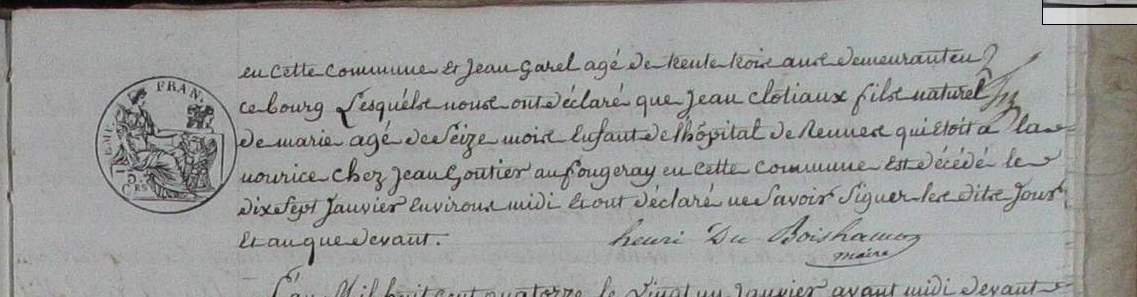 en cette commune et jean garel agé de trente trois ans demeurant en
ce bourg Lesquéls nous ont déclaré que jean clotiaux fils naturel
de marie agé de Seize mois Enfant de l'hôpital de Rennes qui Etoit a la
nourice chez jean Goutier au fougeray en cette commune est décédé le
dix Sept Janvier Environ midi Et ont déclaré ne Savoir Signer les dits Jour
Et an que devant. henri Du Boishamon
maire
FRAN
L'an Mil huit cent quatorze le vingt un Janvier avant midi devant